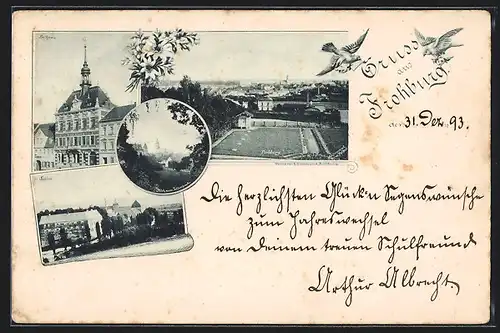 Rathaus
Gruss
aus
Frohburg
den 31. Dez. 93.
Frohburg
Schloss
Die herzlichsten Glück'n Segenswünsche
zum Jahreswechsel
von Deinem treuen Schulfreund
Arthur Albrecht.